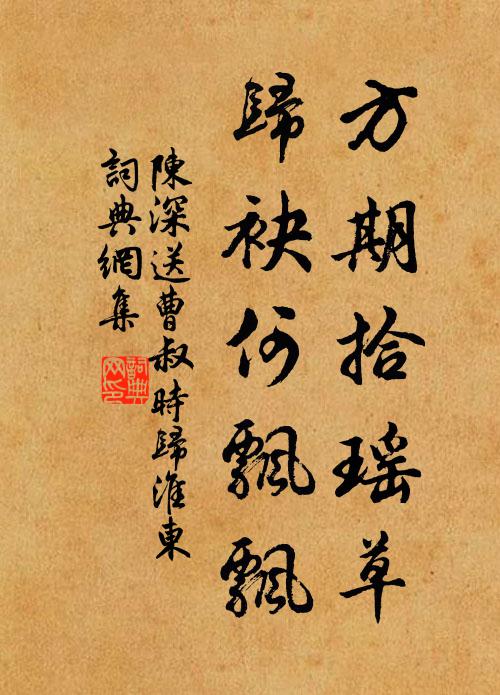 方期拾瑶草
歸袂何飄飄
陳深送曹叔時歸淮東
詞典網集
詞典网印